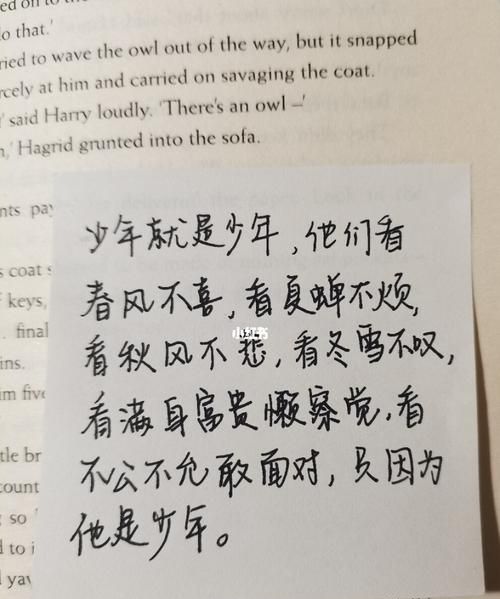 ed on to
lo that.'
ried to wave the owl out of the way, but it snapped
rcely at him and carried on savaging the coat.
!' said Harry loudly. 'There's an owl –'
n,' Hagrid grunted into the sofa.
nts pay
s coat s
keys,
final
ins.
im five
tle br
count
so
d to i
yaw
少年就是少年，他们看
春风不喜，看夏蝉不烦，
看秋风不悲，看冬雪不叹，
看满身富贵懒察觉，看
不公不允敢面对，只因为
他是少年。
小红书